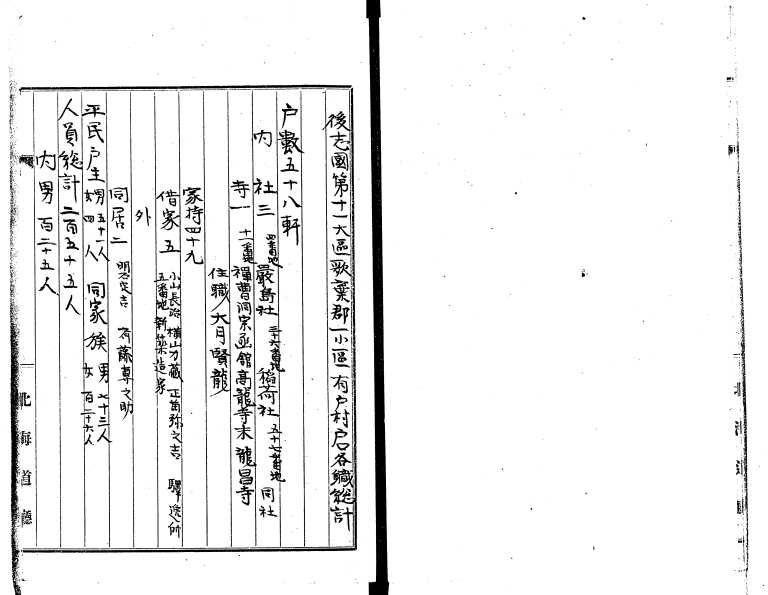 後志國第十一大區歌棄郡一小區有戸村戸各織総計
戸數五十八軒
内 社三 四番地 嚴島社 三十六番地 稲荷社 五十七番地 同社
寺一 十一番地 禅曹洞宗函館高龍寺末 龍昌寺
住職 大月賢龍
家持四十九
借家五 小山長治 横山力藏 正苗弥之吉 驛逓所
五番地 新築造家
外
同居二 明定吉 斉藤専之助
平民戸主 男 五十一人 女 四人 同家族 男 七十三人 女 百二十六人
人員総計二百五十五人
内男百二十五人
北海道廳